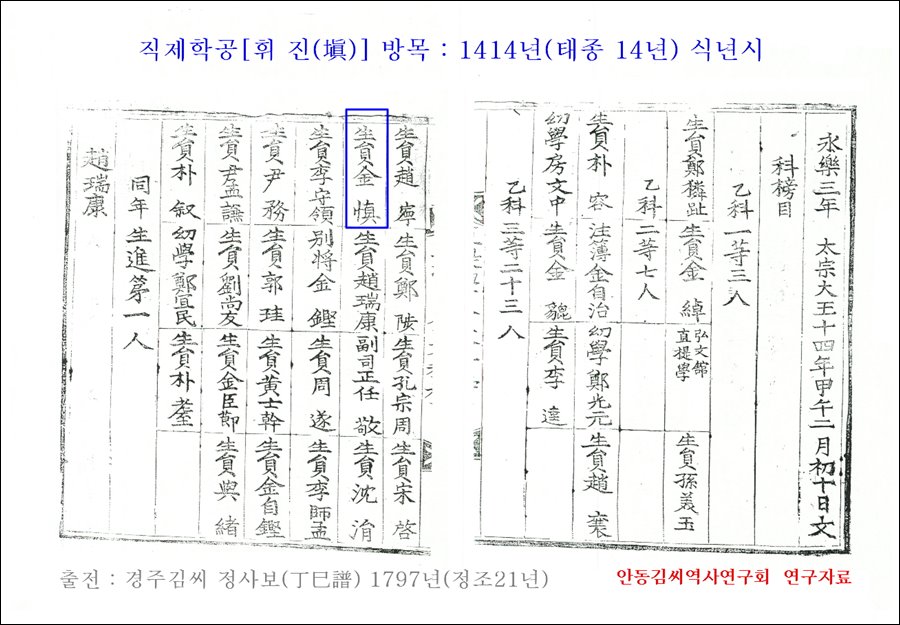 직제학공[휘 진(塡)] 방목 : 1414년(태종 14년) 식년시
永樂三年 太宗大王十四年甲午二月初十日文
科榜目
乙科一等三人
生貟鄭麟趾 生貟金綽 弘文館直提學 生貟孫義玉
乙科二等七人
生貟朴容 注簿金自治 幼學鄭光元 生貟趙襄
幼學房文中 生貟金貔 生貟李
乙科三等二十三人
生貟趙寧 生貟鄭陟 生貟孔宗周 生貟宋啓
生貟金慎 生貟趙瑞康 副司正任敬 生貟沈
生貟李守領 別將金鏗 生貟周遂 生貟李師孟
生貟尹務 生貟郭珪 生貟黃士幹 生貟金自鏗
生貟尹孟謙 生貟劉尚友 生貟金臣節 生貟興緒
生貟朴叙 幼學鄭宜民 生貟朴
同年生進第一人
趙瑞康
출전 : 경주김씨 정사보(丁巳譜) 1797년(정조21년)
안동김씨역사연구회 연구자료